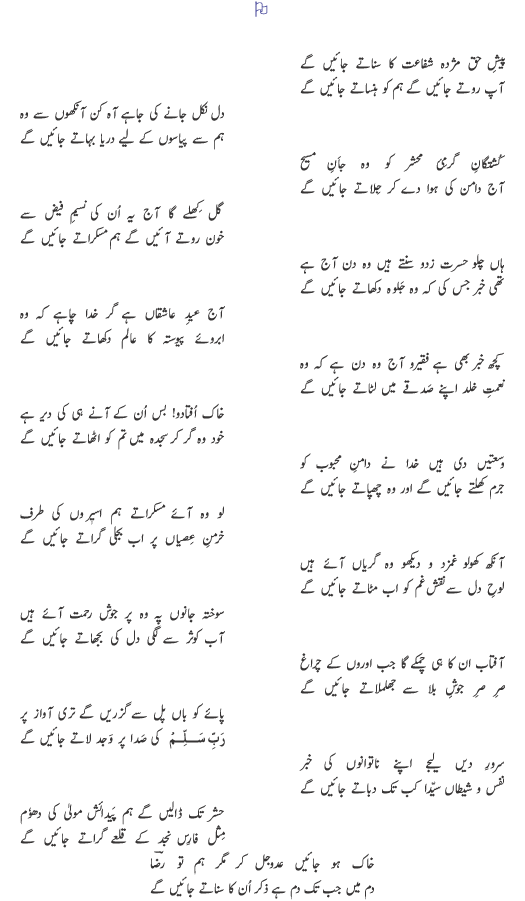 پیشِ حق مژدہ شفاعت کا سناتے جائیں گے
آپ روتے جائیں گے ہم کو ہنساتے جائیں گے
دل نکل جانے کی جا ہے آہ کن آنکھوں سے وہ
ہم سے پیاسوں کے لیے دریا بہاتے جائیں گے
کُشتگانِ گرمیِ محشر کو وہ جانِ مسیح
آج دامن کی ہوا دے کر جِلاتے جائیں گے
گل کِھلے گا آج یہ اُن کی نسیمِ فیض سے
خون روتے آئیں گے ہم مسکراتے جائیں گے
ہاں چلو حسرت زدو سنتے ہیں وہ دن آج ہے
تھی خبر جس کی کہ وہ جلوہ دکھاتے جائیں گے
آج عیدِ عاشقاں ہے گر خدا چاہے کہ وہ
ابروئے پیوستہ کا عالم دکھاتے جائیں گے
کچھ خبر بھی ہے فقیرو آج وہ دن ہے کہ وہ
نعمتِ خلد اپنے صَدقے میں لٹاتے جائیں گے
خاک اُفتادو! بس اُن کے آنے ہی کی دیر ہے
خود وہ گر کر سجدہ میں تم کو اٹھاتے جائیں گے
وسعتیں دی ہیں خدا نے دامنِ محبوب کو
جرم کھلتے جائیں گے اور وہ چھپاتے جائیں گے
لو وہ آئے مسکراتے ہم اسیروں کی طرف
خرمنِ عِصیاں پر اب بجلی گراتے جائیں گے
آنکھ کھولو غمزدو دیکھو وہ گریاں آئے ہیں
لوحِ دل سے نقشِ غم کو اب مٹاتے جائیں گے
سوختہ جانوں پہ وہ پر جوشِ رحمت آئے ہیں
آبِ کوثر سے لگی دل کی بجھاتے جائیں گے
آفتاب ان کا ہی چمکے گا جب اوروں کے چراغ
صرِ صرِ جوشِ بلا سے جھلملاتے جائیں گے
پائے کوباں پل سے گزریں گے تری آواز پر
رَبِّ سَلِّمْ کی صَدا پر وَجد لاتے جائیں گے
سرورِ دیں لیجے اپنے ناتوانوں کی خبر
نفس و شیطاں سیّدا کب تک دباتے جائیں گے
حشر تک ڈالیں گے ہم پَیدائشِ مولیٰ کی دھوم
مِثلِ فارِس نجد کے قلعے گراتے جائیں گے
خاک ہو جائیں عدو جل کر مگر ہم تو رضا
دم میں جب تک دم ہے ذکر اُن کا سناتے جائیں گے